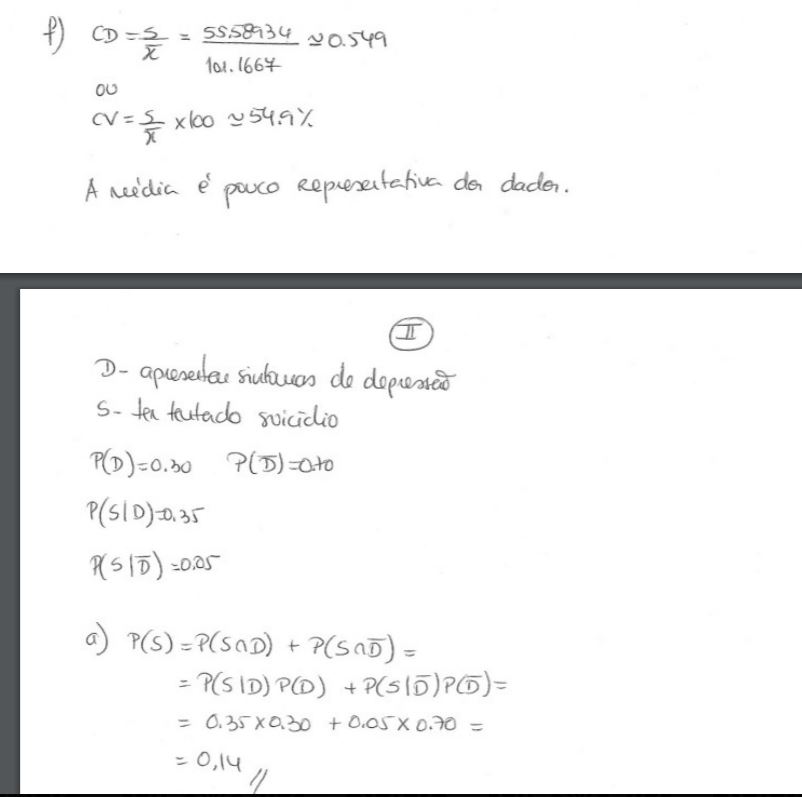 f) CD = s/x̄ = 55.58934/101.1667 ≃ 0.549
ou
CV = s/x̄ × 100 ≃ 54.9%
A média é pouco representativa dos dados.
II
D - apresentar sintomas de depressão
S - ter tentado suicídio
P(D)=0.30 P(D̅)=0.70
P(S|D)=0.35
P(S|D̅)=0.05
a) P(S) = P(S∩D) + P(S∩D̅) =
= P(S|D) P(D) + P(S|D̅)P(D̅) =
= 0.35 × 0.30 + 0.05 × 0.70 =
= 0,14 //